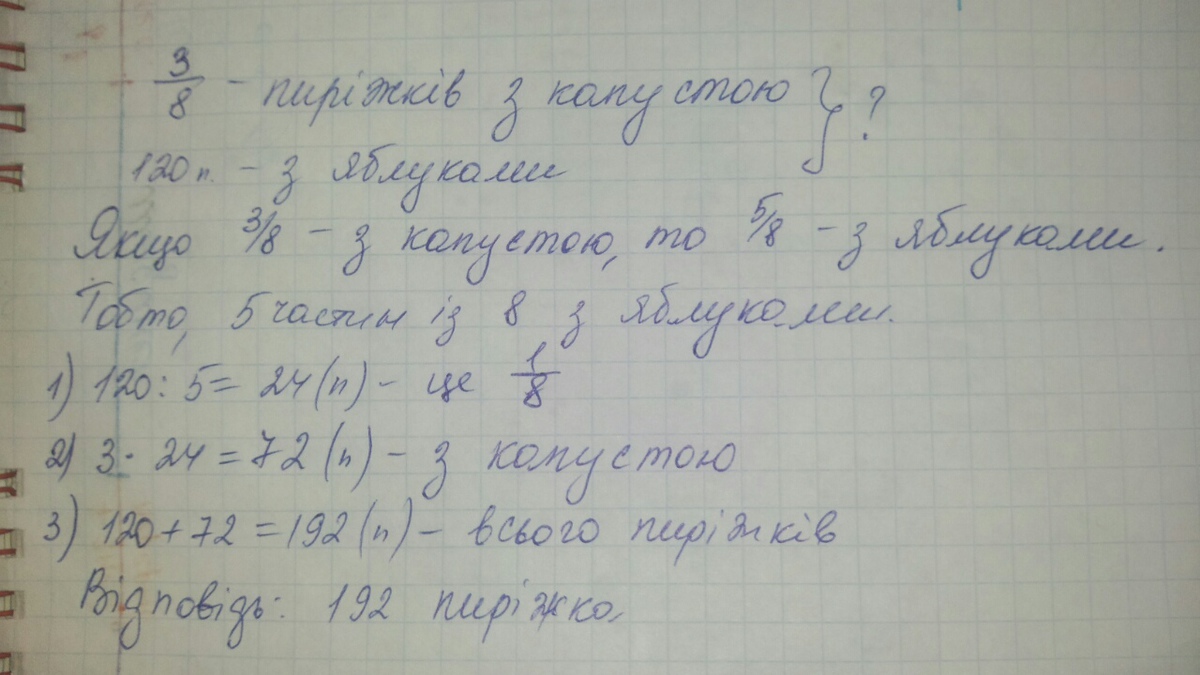 3/8 - пиріжків з капустою } ?
120 п. - з яблуками
Якщо 3/8 - з капустою, то 5/8 - з яблуками.
Тобто, 5 частин із 8 з яблуками.
1) 120 : 5 = 24 (п) - це 1/8
2) 3 · 24 = 72 (п) - з капустою
3) 120 + 72 = 192 (п) - всього пиріжків
Відповідь: 192 пиріжка